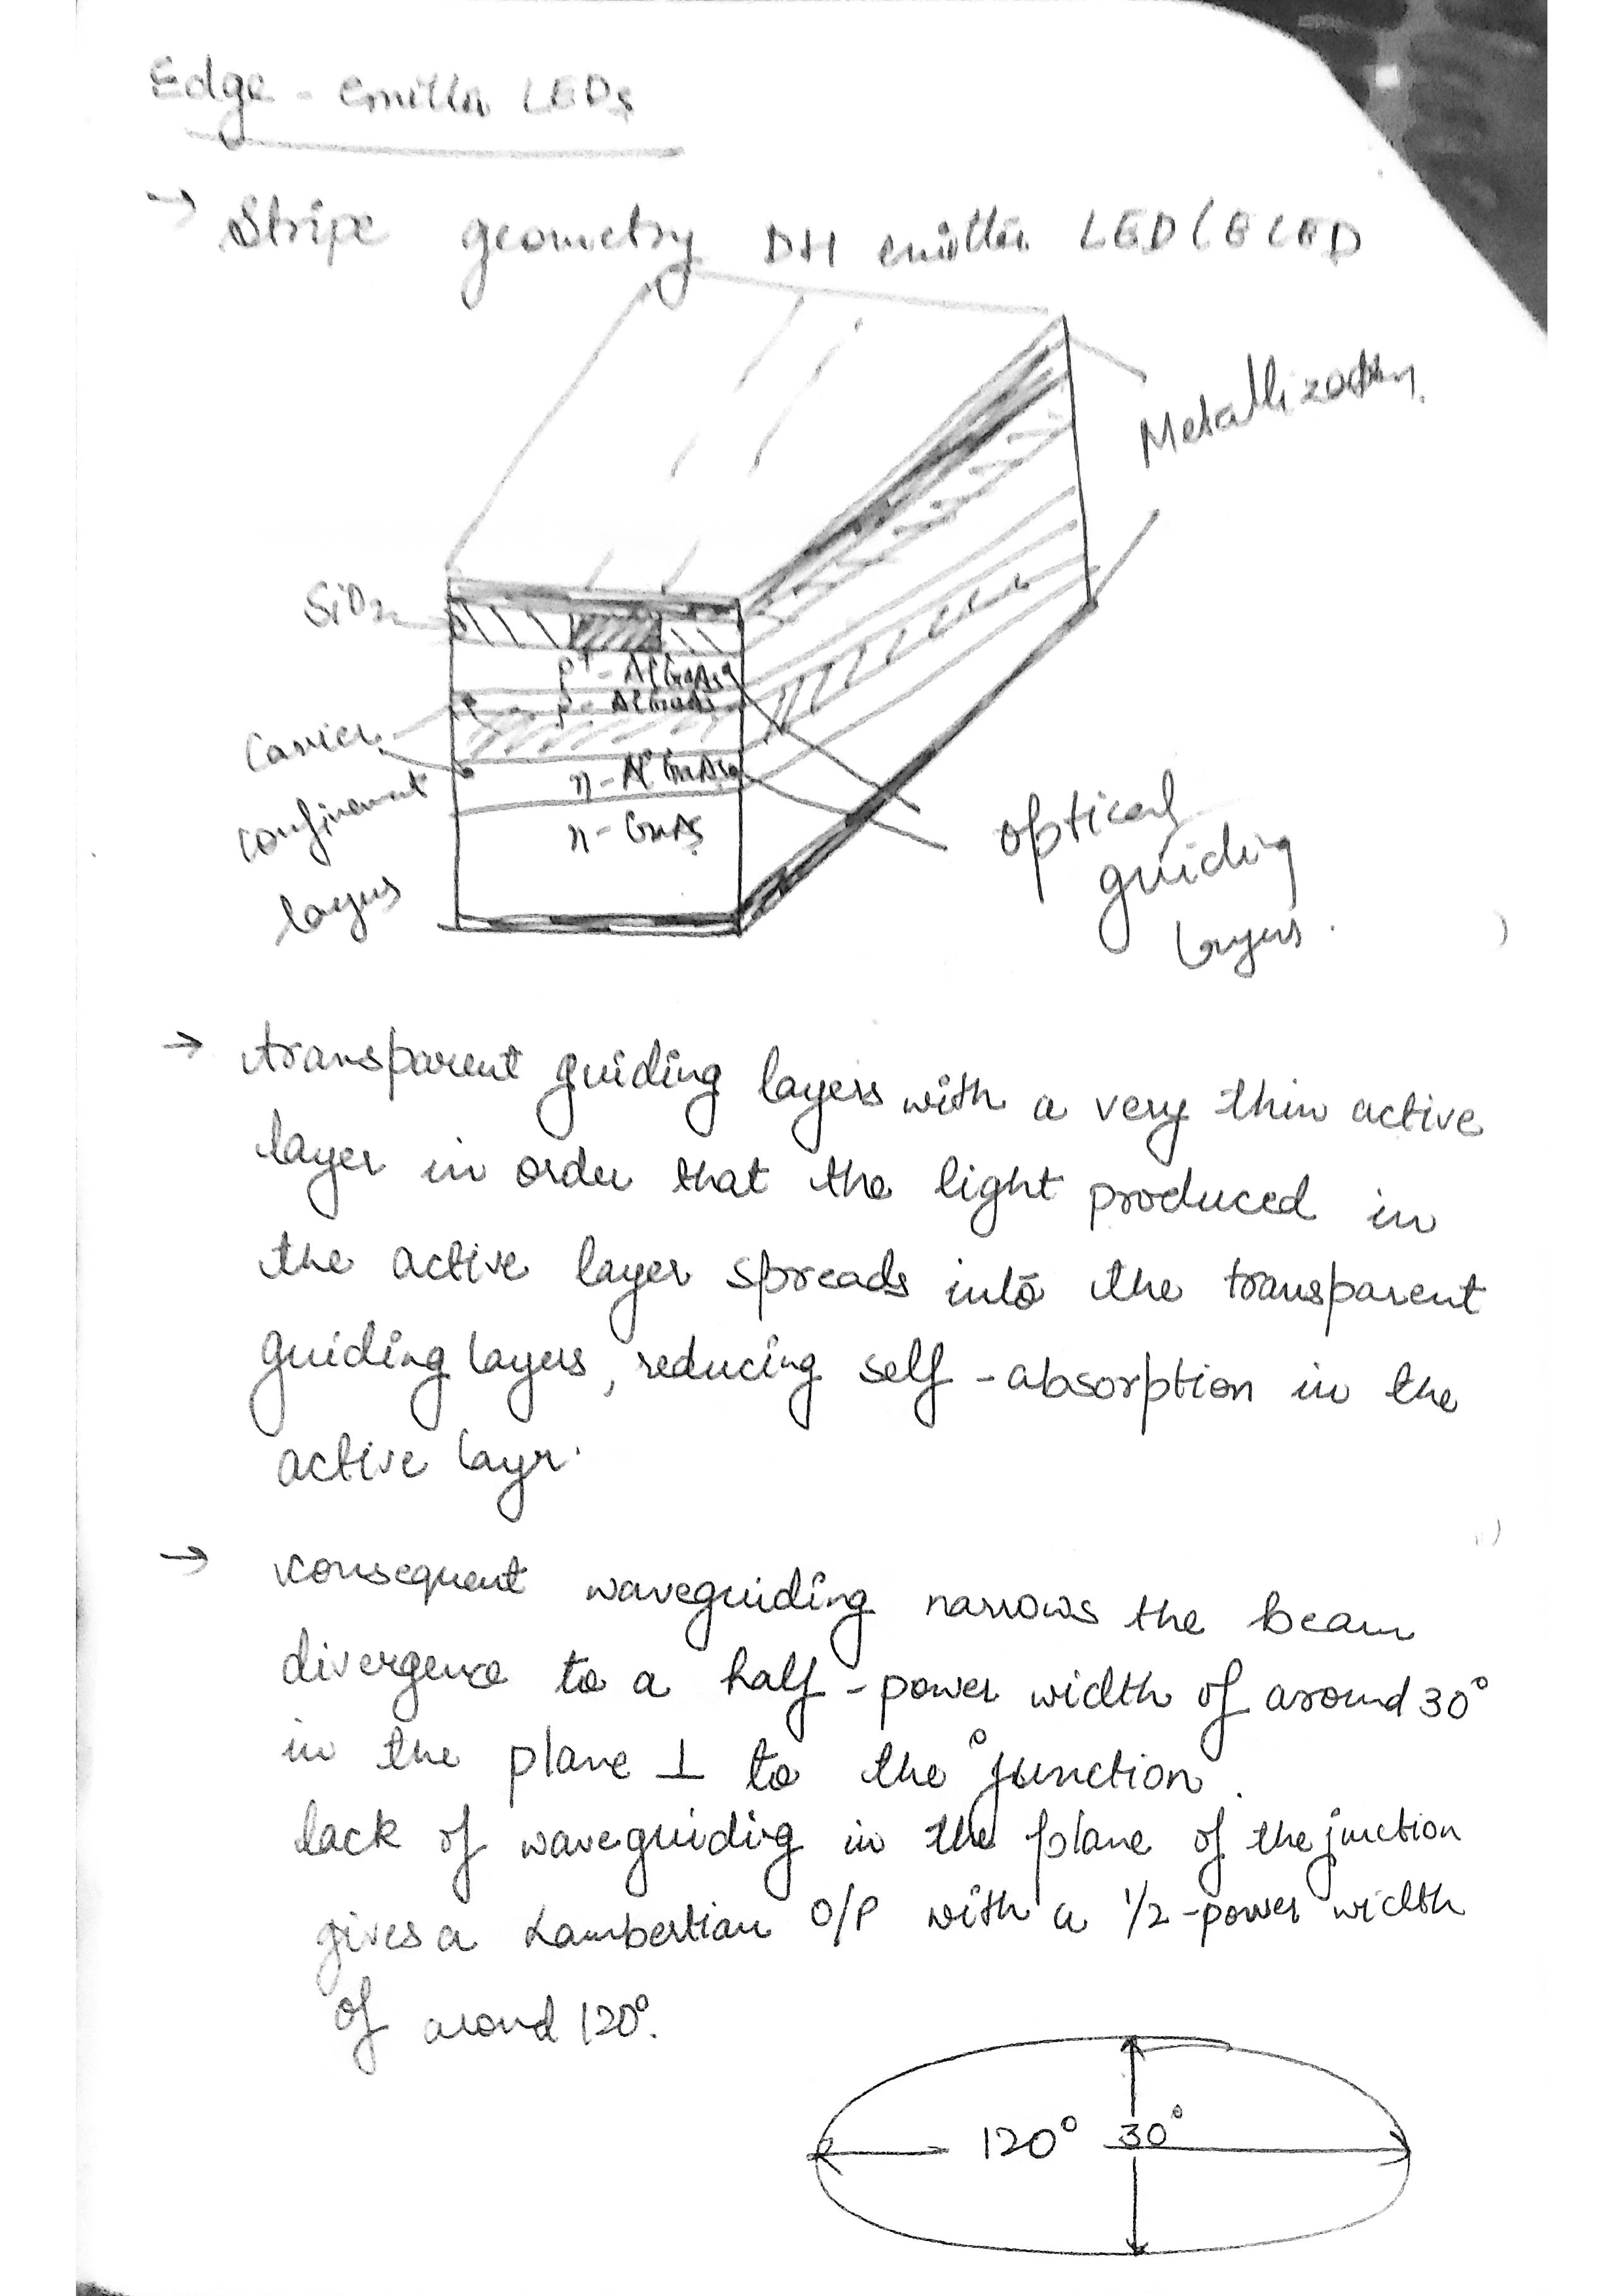 Edge - emitter LEDs
→ Stripe geometry DH emitter LED (ELED
Metallization.
SiO2
p+ - AlGaAs
p - AlGaAs
Carrier
confinement
layers
n - AlGaAs
n - GaAs
optical
guiding
layers.
→ transparent guiding layers with a very thin active
layer in order that the light produced in
the active layer spreads into the transparent
guiding layers, reducing self - absorption in the
active layr.
→ consequent waveguiding narrows the beam
divergence to a half - power width of around 30°
in the plane ⊥ to the junction.
lack of waveguiding in the plane of the junction
gives a Lambertian O/P with a 1/2 - power width
of around 120°.
120° 30°